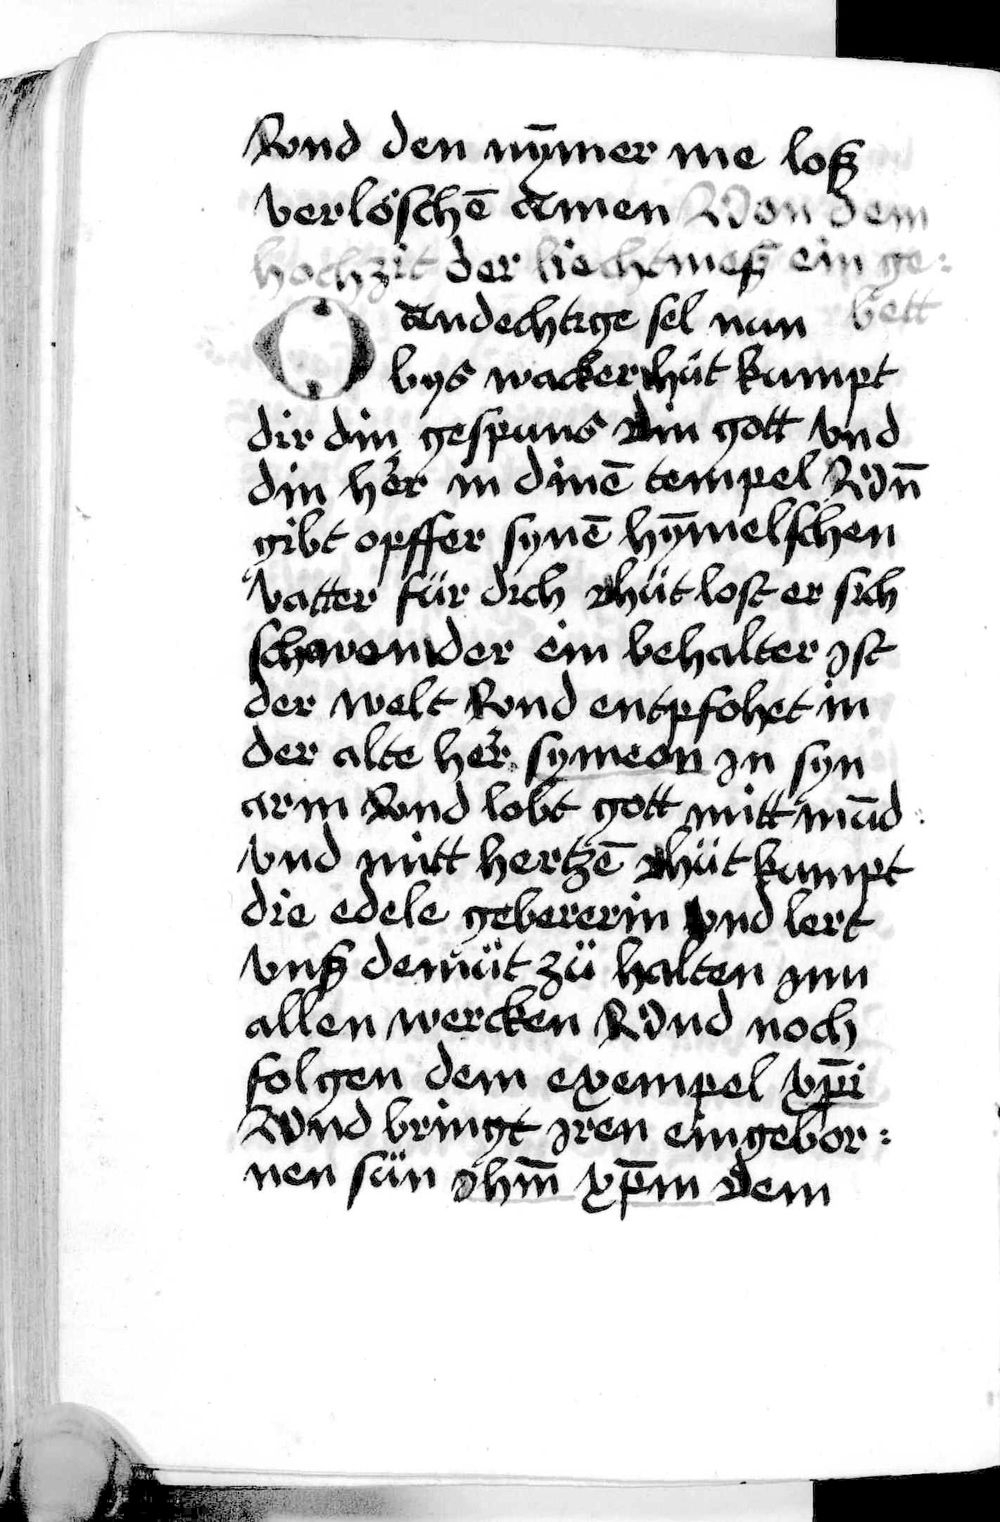 Vnd den nȳmer me loß
verlöschē Amen Von dem
hochzit der liechtmeß ein ge:
bett
O Andechtige sel nun
bys wacker hüt kumpt
dir din gespuns din gott vnd
din her in dinē tempel Vn̄
gibt opffer synē hȳmelschen
vatter für dich hüt lost er sich
schowen der ein behalter ist
der welt Vnd entpfohet in
der alte her symeon in syn
arm Vnd lobt gott mitt mūd
vnd mitt hertzē hüt kumpt
die edele gebererin vnd lert
vnß demüt zü halten inn
allen wercken Vnd noch
folgen dem exempel xp̄i
Vnd bringt iren eingebor:
nen sün ihm̄ xp̄m dem